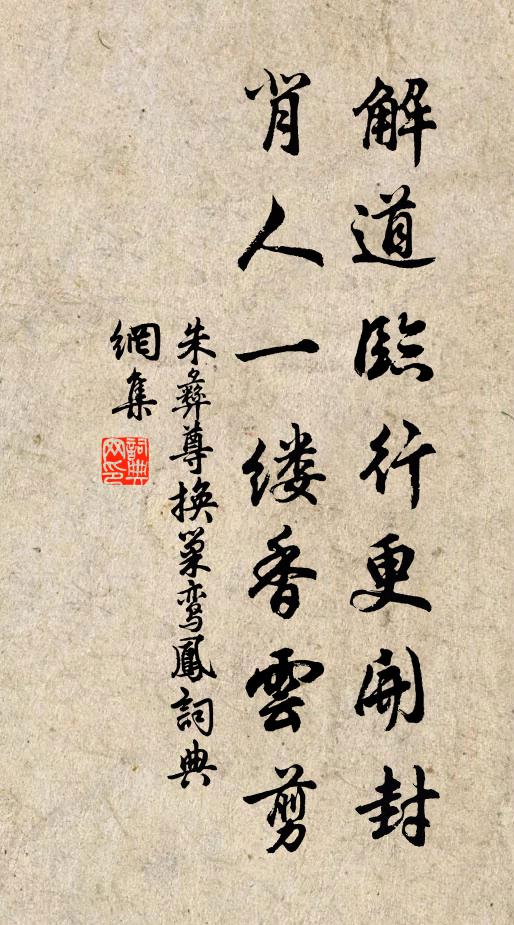 解道臨行更開封
肯人一缕香雲剪
朱彝尊換巢鸾鳳詞典
網集
詞典
网印